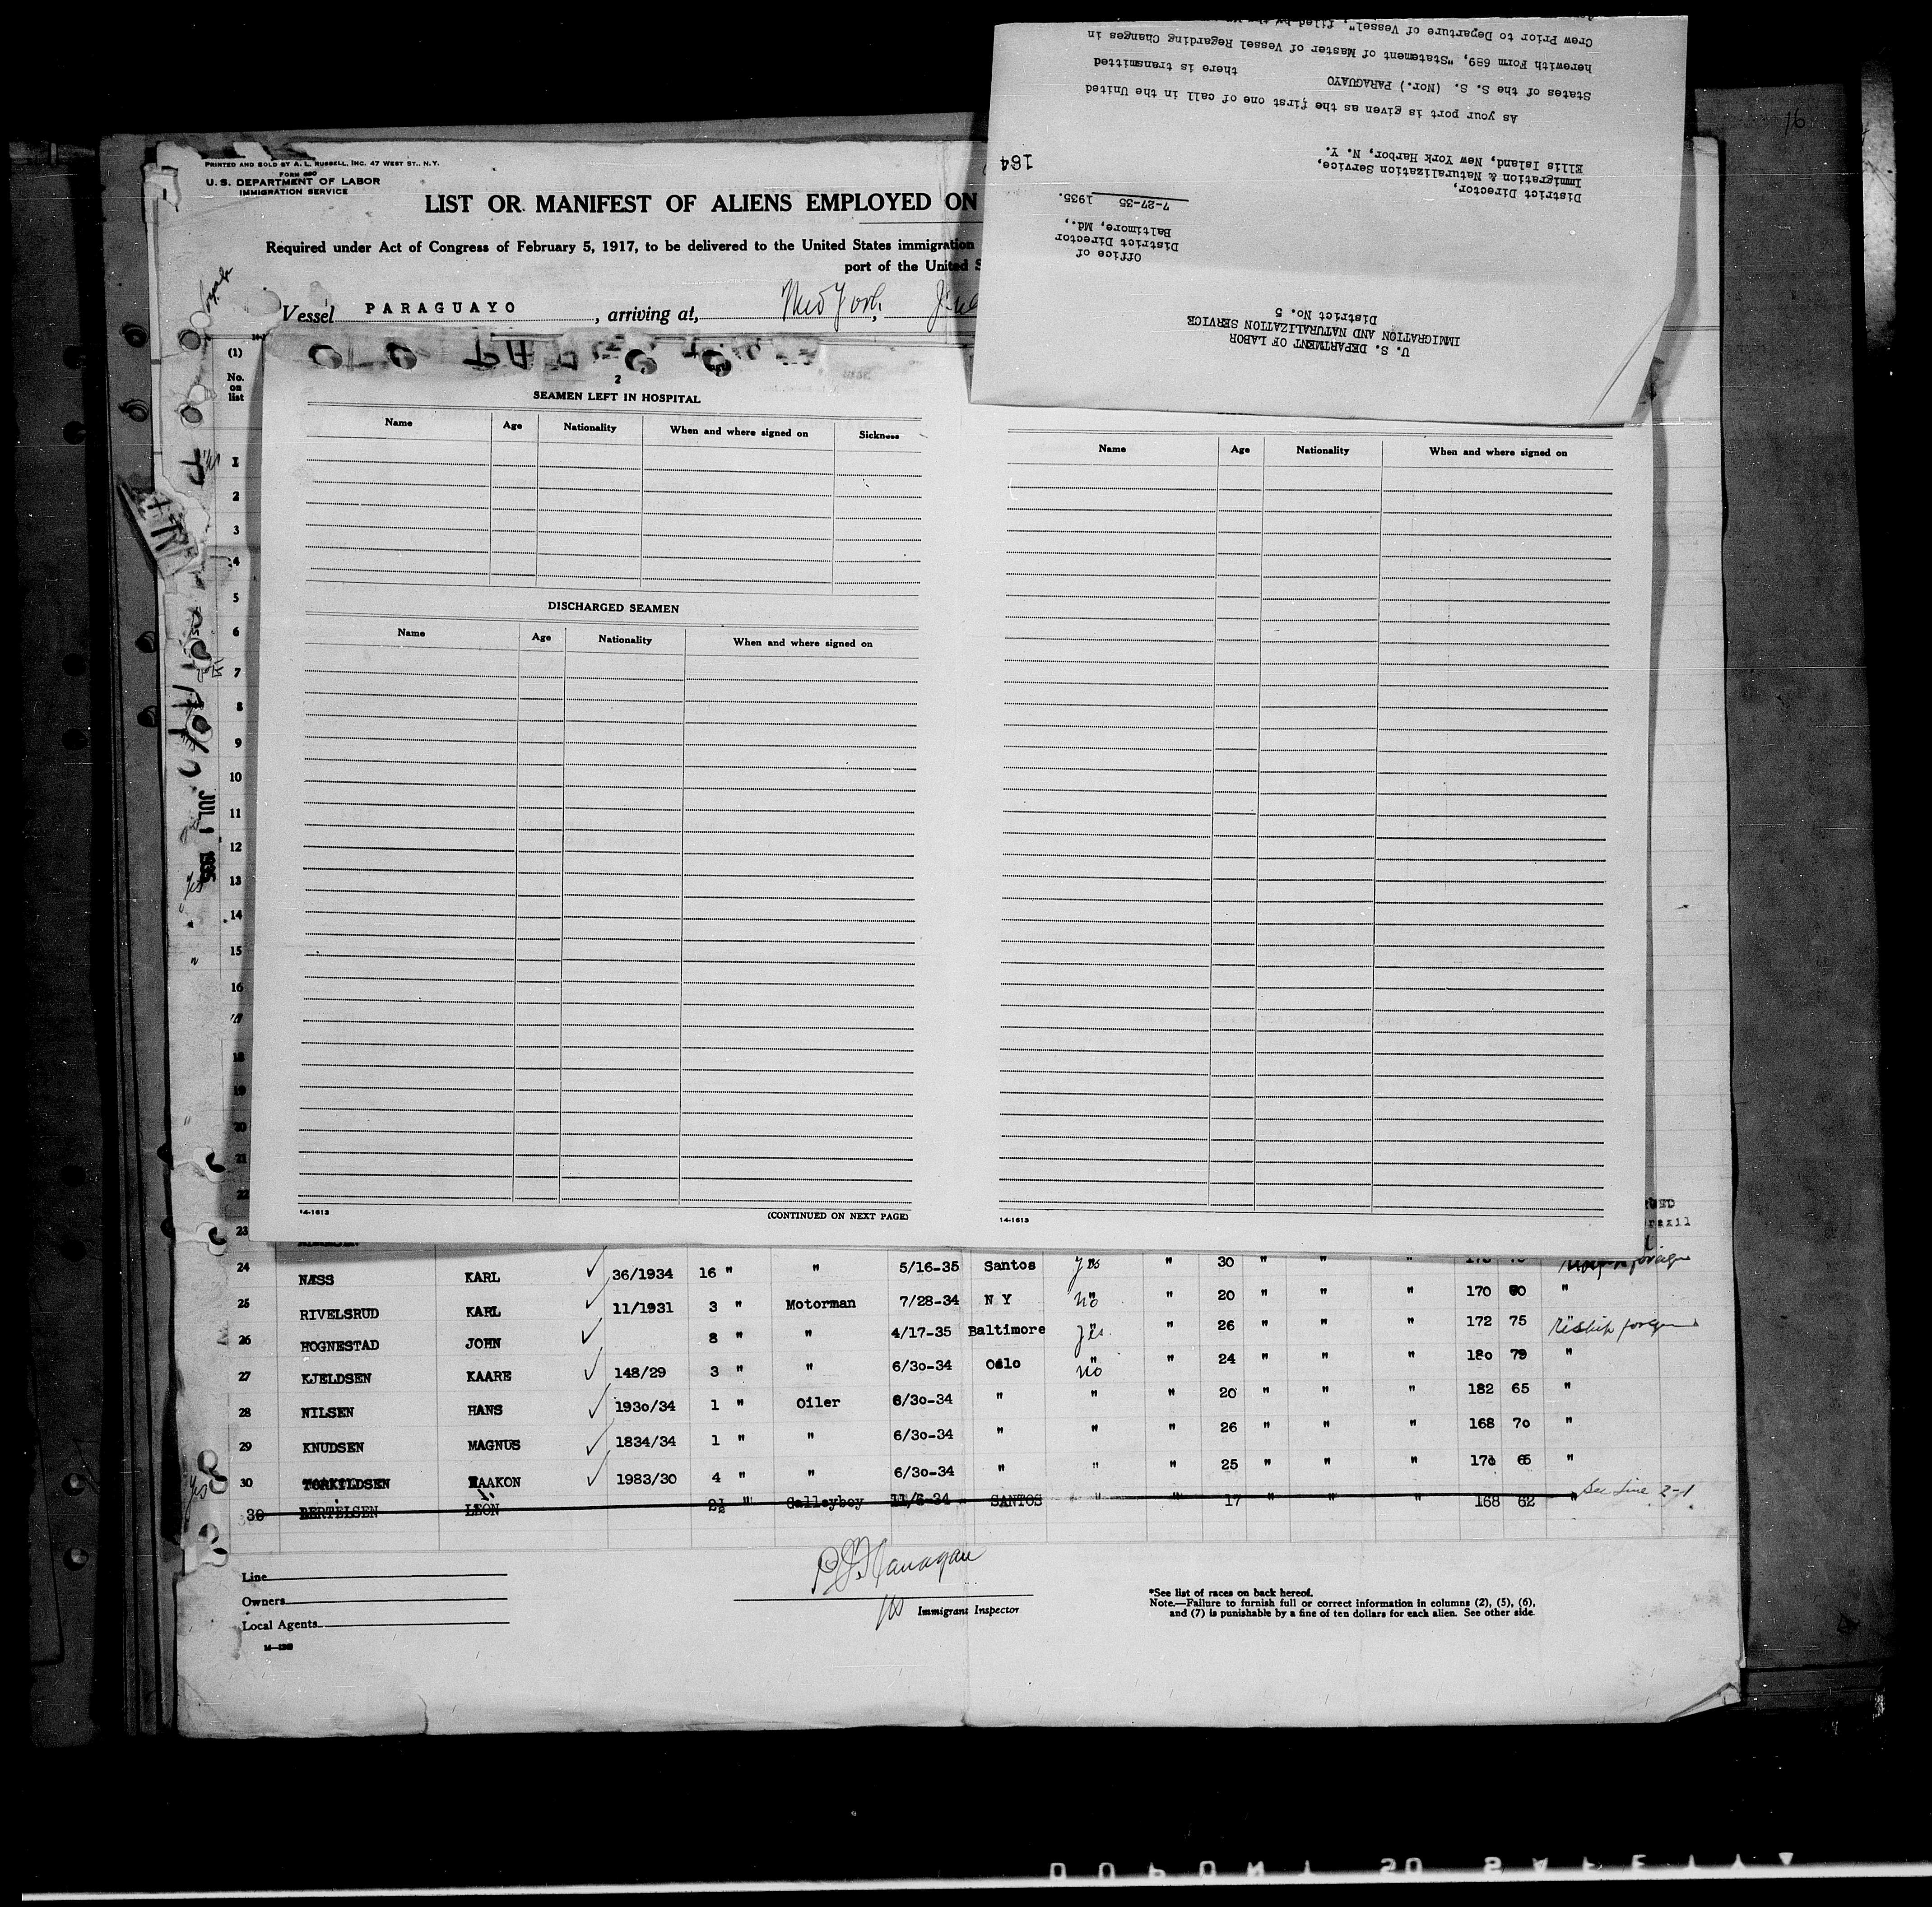 PRINTED AND SOLD BY A. L. RUSSELL, INC. 47 WEST ST., N.Y.
FORM 680
U. S. DEPARTMENT OF LABOR
IMMIGRATION SERVICE
LIST OR MANIFEST OF ALIENS EMPLOYED ON
Required under Act of Congress of February 5, 1917, to be delivered to the United States immigration
port of the United S
Vessel PARAGUAYO , arriving at, New York,
U. S. DEPARTMENT OF LABOR
IMMIGRATION AND NATURALIZATION SERVICE
District No. 5
Office of
District Director
Baltimore, Md.,
7-27-35 1935.
District Director,
Immigration & Naturalization Service,
Ellis Island, New York Harbor, N. Y.
164
As your port is given as the first one of call in the United
States of the S. S. (Nor.) PARAGUAYO there is transmitted
herewith Form 689, "Statement of Master of Vessel Regarding Changes in
Crew Prior to Departure of Vessel", filed by the
16
(1)
No.
on
list
2
SEAMEN LEFT IN HOSPITAL
Name Age Nationality When and where signed on Sickness
DISCHARGED SEAMEN
Name Age Nationality When and where signed on
14-1613 (CONTINUED ON NEXT PAGE)
Name Age Nationality When and where signed on
14-1613
JUL 1 1935
1
2
3
4
5
6
7
8
9
10
11
12
13
14
15
16
17
18
19
20
21
22
23
24 NÆSS KARL 36/1934 16 " " 5/16-35 Santos yes " 30 " " "
25 RIVELSRUD KARL 11/1931 3 " Motorman 7/28-34 N Y no " 20 " " " 170 "
26 HOGNESTAD JOHN 8 " " 4/17-35 Baltimore yes " 26 " " " 172 75 Reship foreign
27 KJELDSEN KAARE 148/29 3 " " 6/30-34 Oslo " no " 24 " " " 180 79 "
28 NILSEN HANS 1930/34 1 " Oiler 6/30-34 " " " 20 " " " 182 65 "
29 KNUDSEN MAGNUS 1834/34 1 " " 6/30-34 " " " 26 " " " 168 70 "
30 TORKILDSEN HAAKON 1983/30 4 " " 6/30-34 " " " 25 " " " 65 "
30 BERTELSEN LEON 2½ " Galleyboy 11/6-34 SANTOS " " 17 " " " 168 62 " See Line 2-1
Line
Owners
Local Agents
Immigrant Inspector
*See list of races on back hereof.
Note.—Failure to furnish full or correct information in columns (2), (5), (6),
and (7) is punishable by a fine of ten dollars for each alien. See other side.
DUPONT SAFETY